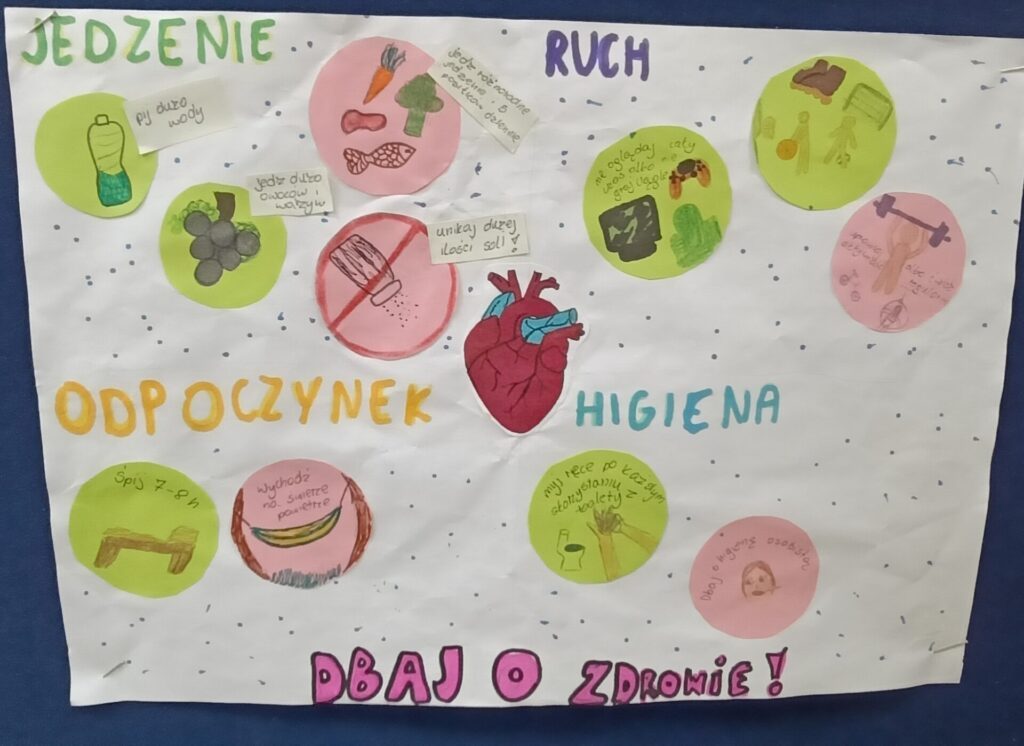 JEDZENIE
pij dużo
wody
jedz różnorodne
jedzenie i 5
posiłków dziennie
jedz dużo
owoców i
warzyw
unikaj dużej
ilości soli!
RUCH
nie oglądaj cały
czas albo nie
graj ciągle
ODPOCZYNEK
śpij 7-8 h
Wychodź
na świerze
powietrze
HIGIENA
myj ręce po każdym
skorzystaniu z
toalety
Dbaj o higienę osobistą
DBAJ O ZDROWIE!